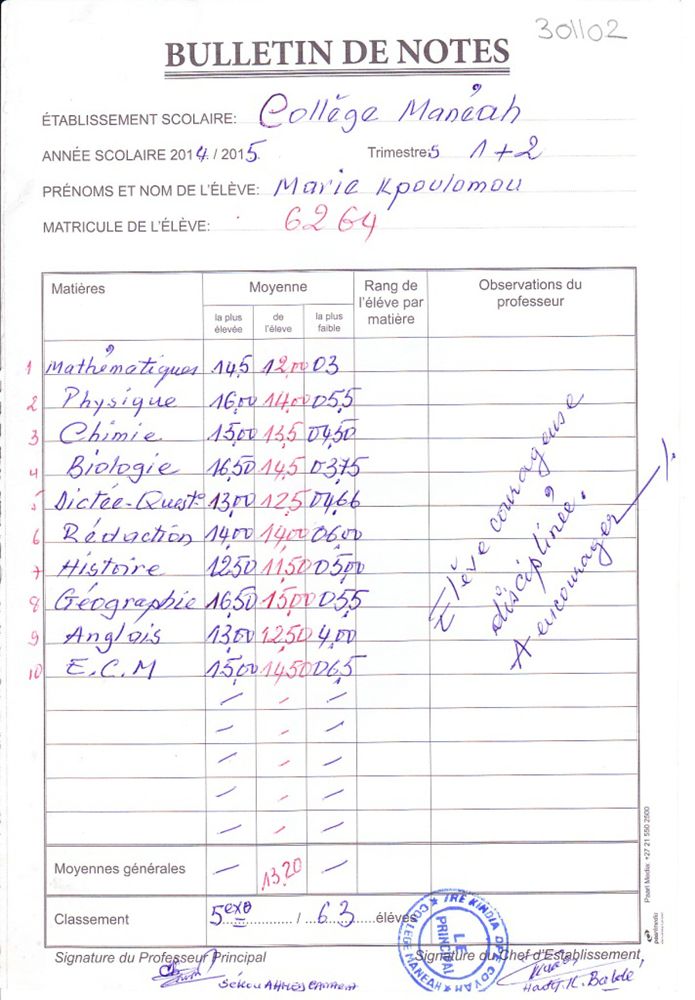 301102
BULLETIN DE NOTES
ÉTABLISSEMENT SCOLAIRE: Collège Manéah
ANNÉE SCOLAIRE 2014 / 2015. Trimestres 1 + 2
PRÉNOMS ET NOM DE L'ÉLÈVE: Marie Kpoulomou
MATRICULE DE L'ÉLÈVE: 6264
Matières Moyenne Rang de l'éléve par matière Observations du professeur
la plus élevée de l'éleve la plus faible
1 Mathématiques 14,5 12,00 03
2 Physique 16,00 14,00 05,5
3 Chimie 15,00 13,5 04,50
4 Biologie 16,50 14,5 03,75
5 Dictée-Quest° 13,00 12,5 04,66
6 Rédaction 14,00 14,00 06,00
7 Histoire 12,50 11,50 05,00
8 Géographie 16,50 15,00 05,5
9 Anglais 13,00 12,50 4,00
10 E.C.M 15,00 14,50 06,5
Elève courageuse
disciplinée.
A encourager
Moyennes générales 13,20
Classement 5exo / 63 élèves
Signature du Professeur Principal Signature du Chef d'Établissement
Sékou
Hadj. K. Baldé
IRE KINDIA DPE COYAH
COLLEGE MANEAH
LE PRINCIPAL
Paarl Media: +27 21 550 2500